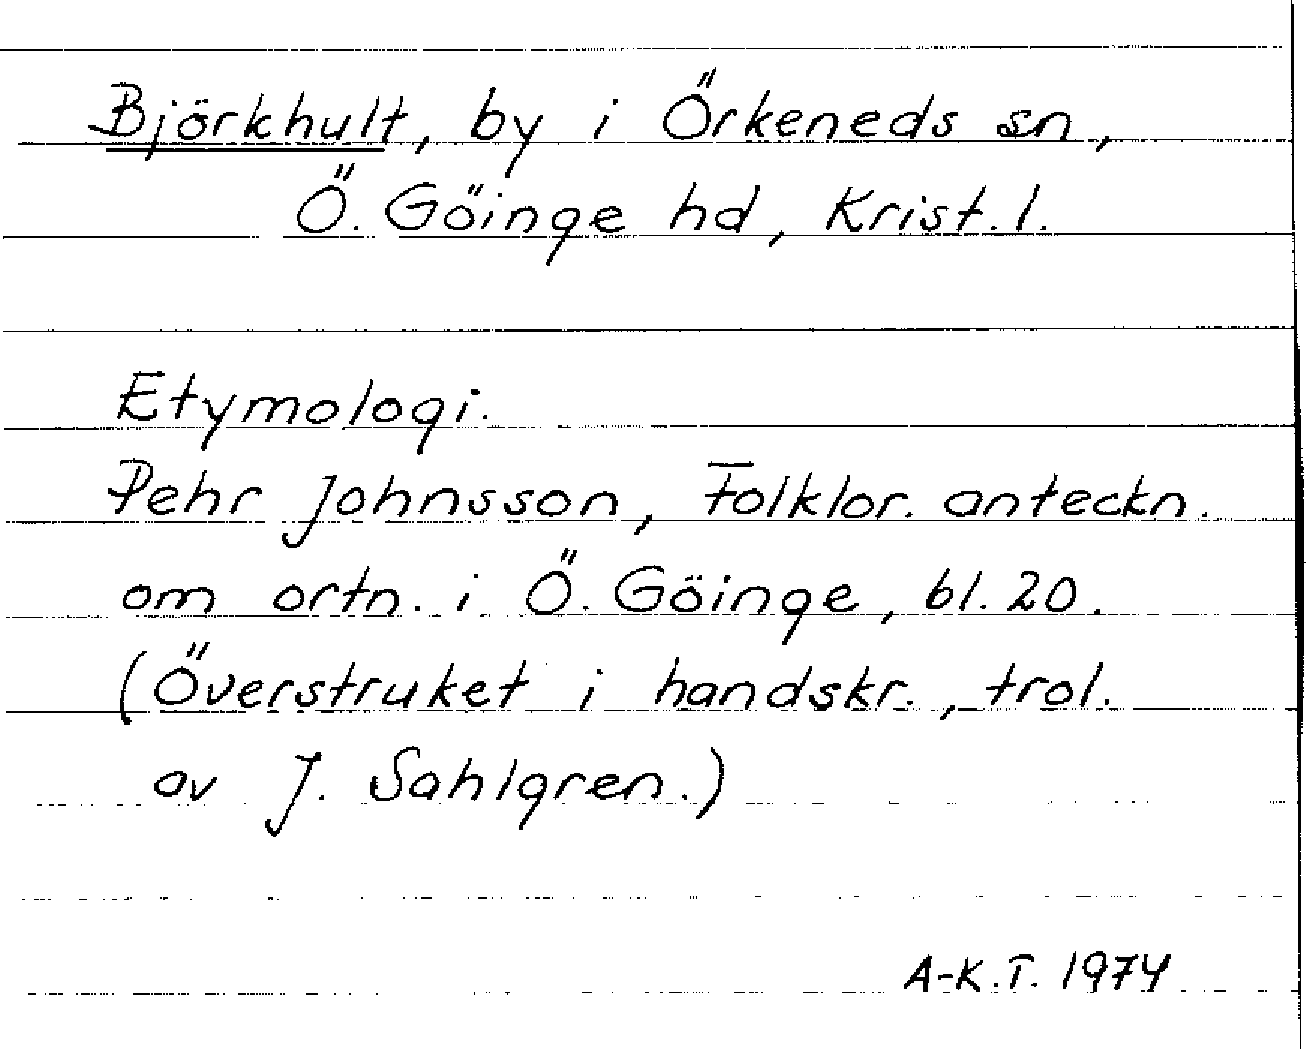 Björkhult, by i Örkeneds sn,
Ö. Göinge hd, Krist. l.
Etymologi.
Pehr Johnsson, Folklor. anteckn.
om ortn. i Ö. Göinge, bl. 20.
(Överstruket i handskr., trol.
av J. Sahlgren.)
A-K.T. 1974